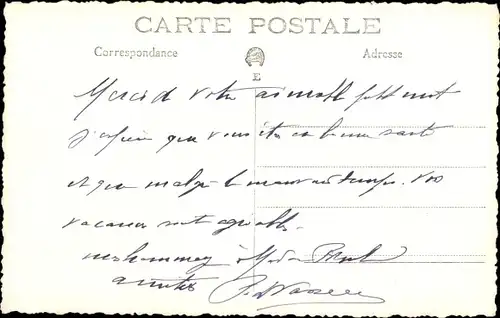 CARTE POSTALE
Correspondance Adresse
E
Merci de votre aimable petit mot
j'espère que vous êtes en bonne santé
et que malgré le mauvais temps. vos
vacances sont agréables.
mes hommages à Madame
amitiés